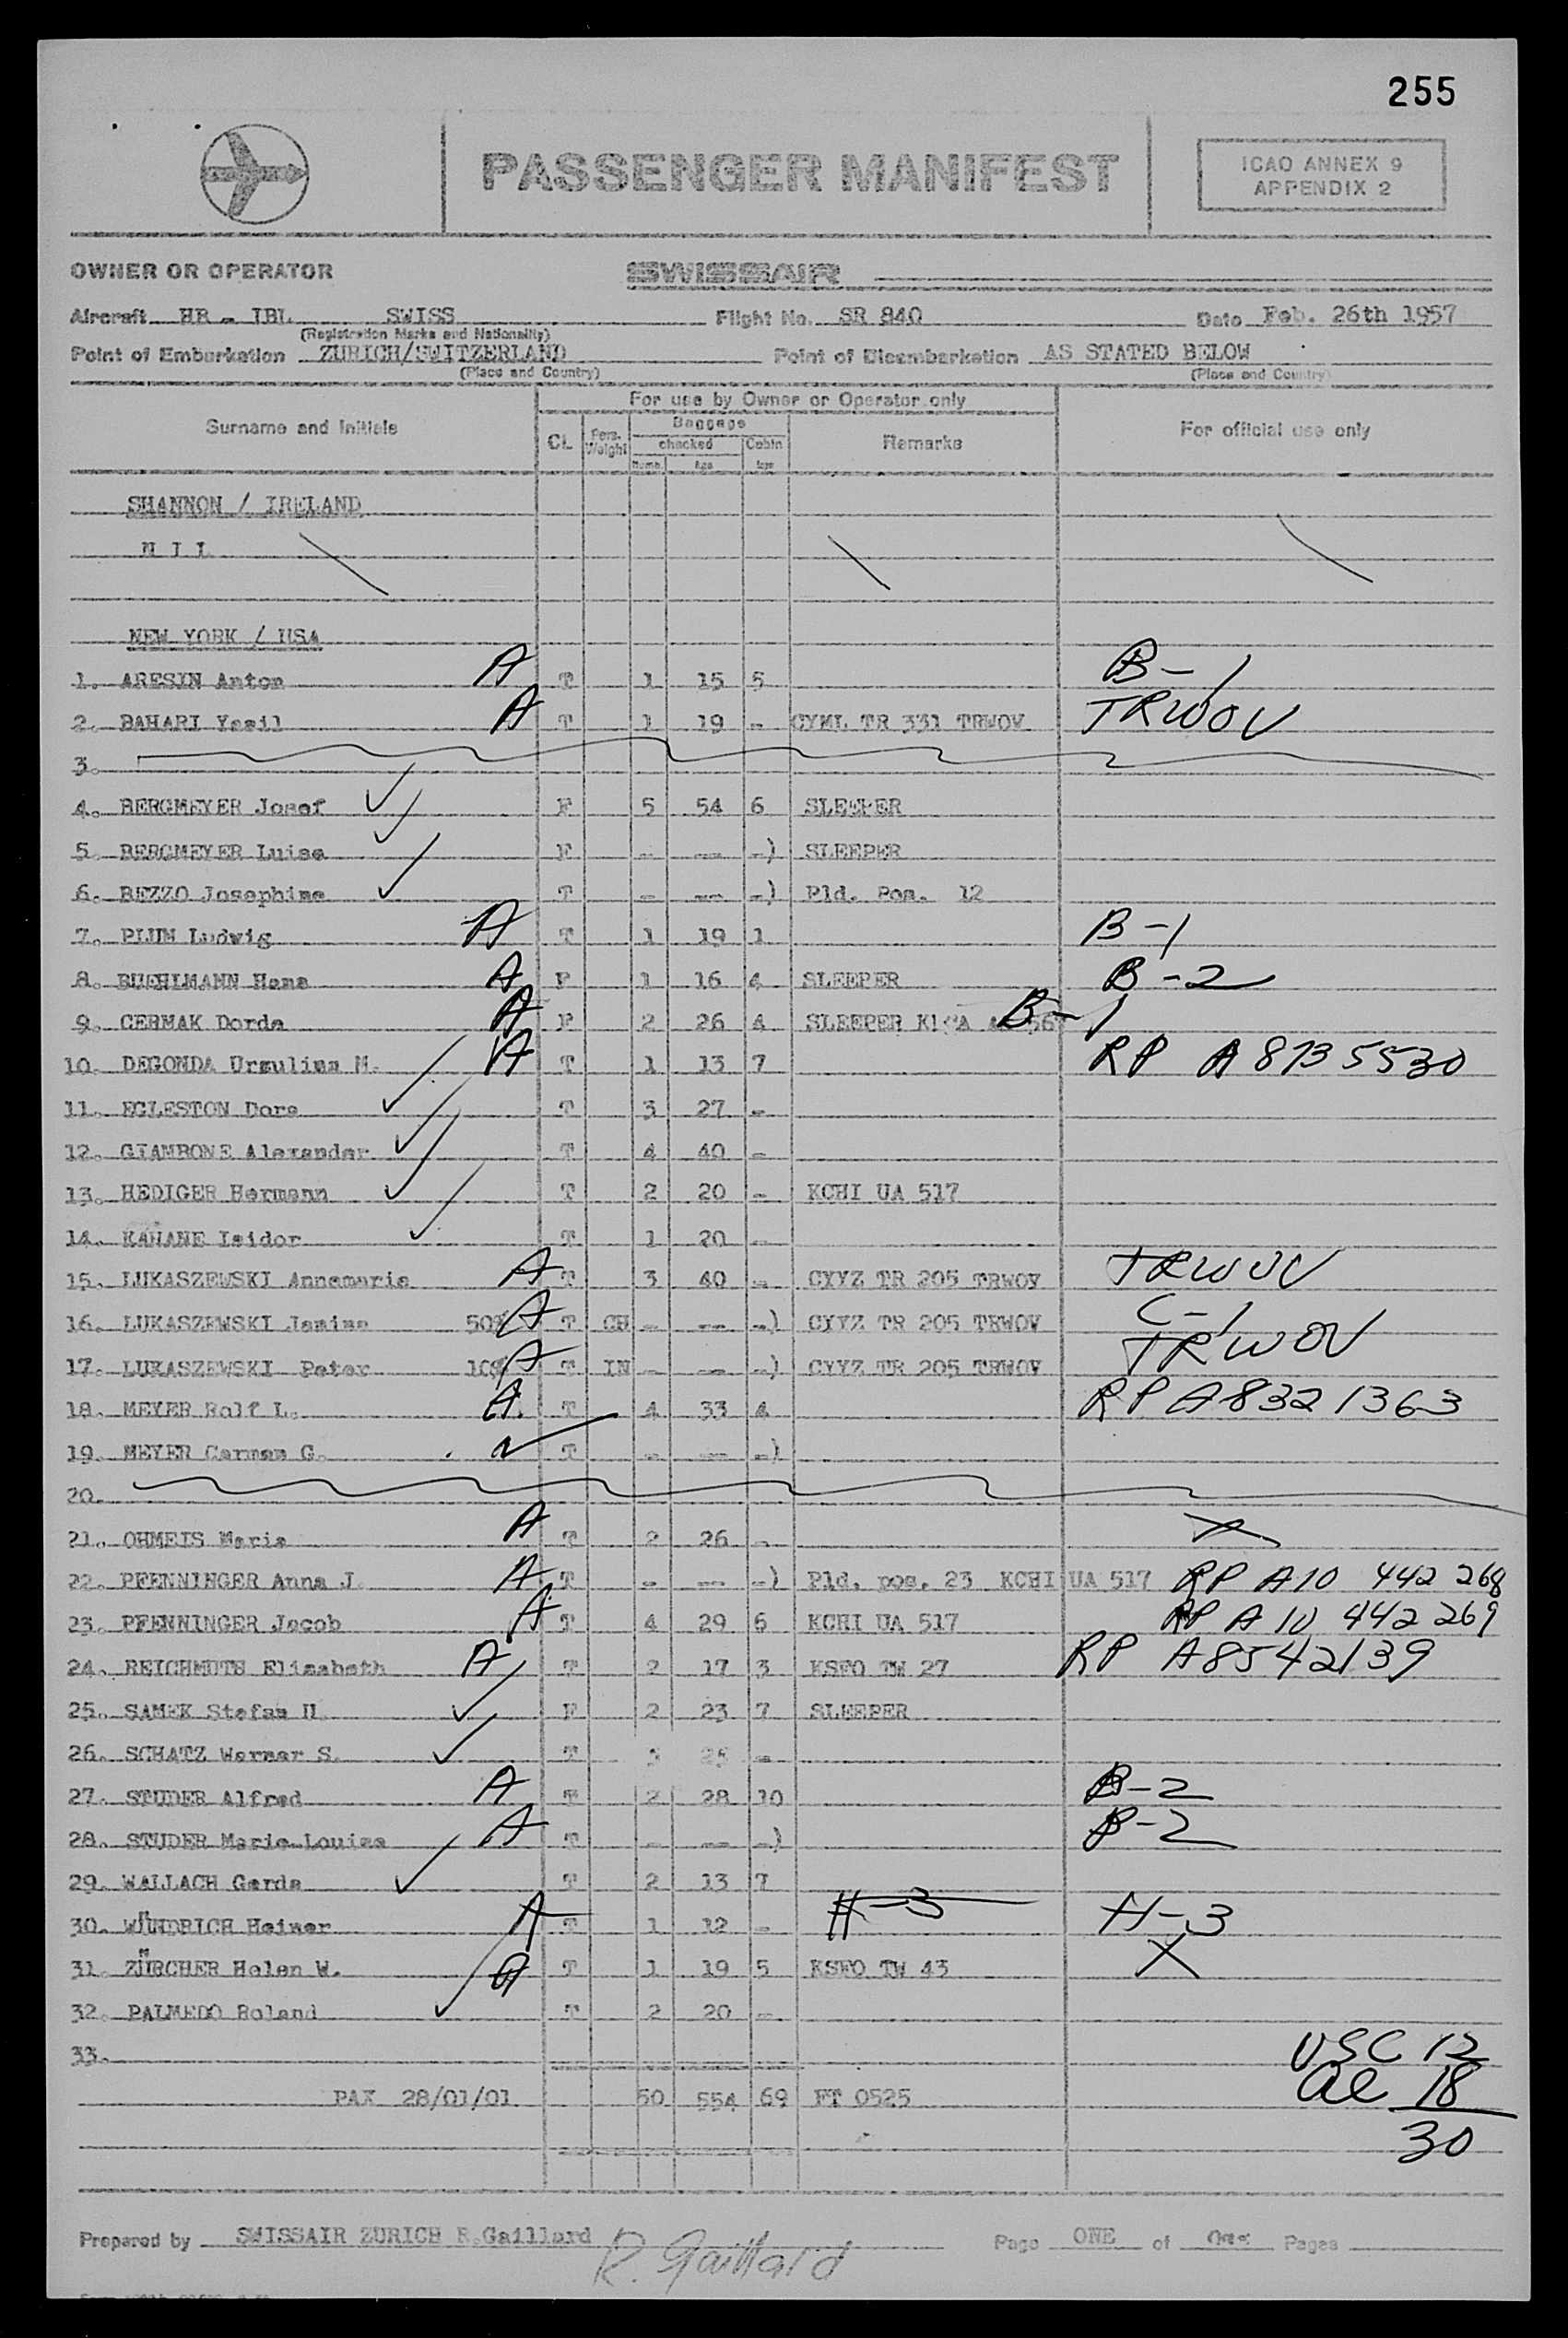 255
PASSENGER MANIFEST
ICAO ANNEX 9
APPENDIX 2
OWNER OR OPERATOR SWISSAIR
Aircraft HB - IBL SWISS Flight No. SR 840 Date Feb. 26th 1957
(Registration Marks and Nationality)
Point of Embarkation ZURICH/SWITZERLAND Point of Disembarkation AS STATED BELOW
(Place and Country) (Place and Country)
For use by Owner or Operator only
Surname and Initials CL. Pers. Weight Baggage checked Cabin Remarks For official use only
Numb. kgs kgs
SHANNON / IRELAND
N I L
NEW YORK / USA
1. ARESIN Anton A T 1 15 5 B-1
2. BAHARI A T 1 19 - CYML TR 331 TRWOV TRWOV
3.
4. BERGMEYER Josef F 5 54 6 SLEEPER
5. BERGMEYER Luise F - -- -) SLEEPER
6. BEZZO Josephine T - -- -) Pld. Pos. 12
7. Ludwig A T 1 19 1 B-1
8. BUEHLMANN Hans A F 1 16 4 SLEEPER B-2
9. CERMAK Dorda A F 2 26 4 SLEEPER B-1
10. DEGONDA Ursulina M. A T 1 13 7 RP A8735530
11. EGLESTON Dora T 3 27 -
12. GIAMBONE Alexander T 4 40 -
13. HEDIGER Hermann T 2 20 - KCHI UA 517
14. KAHANE Isidor T 1 20 -
15. LUKASZEWSKI Annamaria A T 3 40 - CYYZ TR 205 TRWOV TRWOV
16. LUKASZEWSKI Janina 50% A T CH - -- -) CYYZ TR 205 TRWOV C-1
17. LUKASZEWSKI Peter 10% A T IN - -- -) CYYZ TR 205 TRWOV TRWOV
18. MEYER Rolf L. A T 4 33 4 RP A8321363
19. MEYER Carmen G. T - -- -)
20.
21. OHMEIS Maria A T 2 26 - X
22. PFENNINGER Anna J. A T - -- -) Pld. pos. 23 KCHI UA 517 RP A10 442 268
23. PFENNINGER Jacob A T 4 29 6 KCHI UA 517 RP A10 442 269
24. REICHMUTH Elisabeth A T 2 17 3 KSFO TW 27 RP A8542139
25. SAMEK Stefan H. F 2 23 7 SLEEPER
26. SCHATZ Werner S. T -
27. STUDER Alfred A T 2 28 10 B-2
28. STUDER Marie-Louise A T - -- -) B-2
29. WALLACH Gerda T 2 13 7
30. WÜNDRICH Heiner A T 1 12 - H-3 H-3
31. ZÜRCHER Helen W. A T 1 19 5 KSFO TW 43 X
32. PALMEDO Roland T 2 20 -
33.
USC 12
PAX 28/01/01 50 554 69 FT 0525 al 18
30
Prepared by SWISSAIR ZURICH R.Gaillard R. Gaillard Page ONE of One Pages